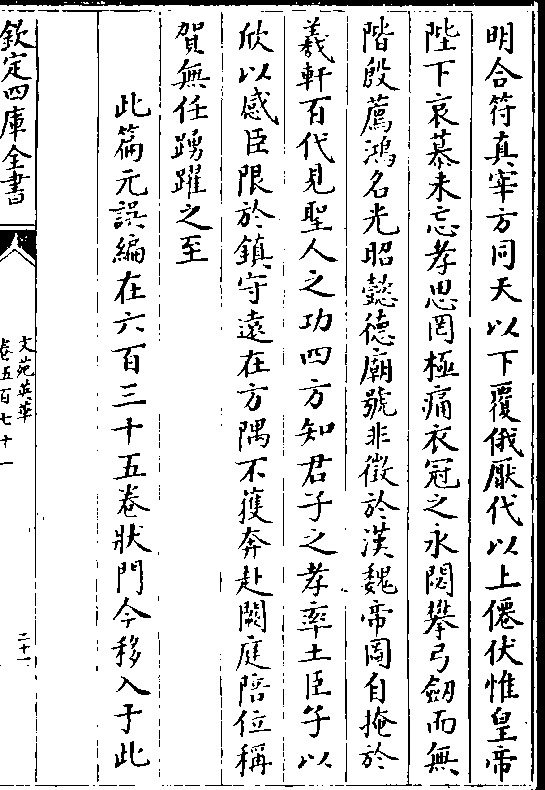 明合符真宰方同天以下覆俄厭代以上僊伏惟皇帝
陛下哀慕未忘孝思罔極痛衣冠之永閟攀弓劒而無
階殷薦鴻名光昭懿德廟號非徵於漢魏帝圖自掩於
羲軒百代見聖人之功四方知君子之孝率土臣子以
欣以感臣限於鎮守遠在方隅不獲奔赴闕庭陪位稱
賀無任踴躍之至
此篇元誤編在六百三十五卷狀門今移入于此
欽定四庫全書
文苑英華
卷五百七十一
二十一